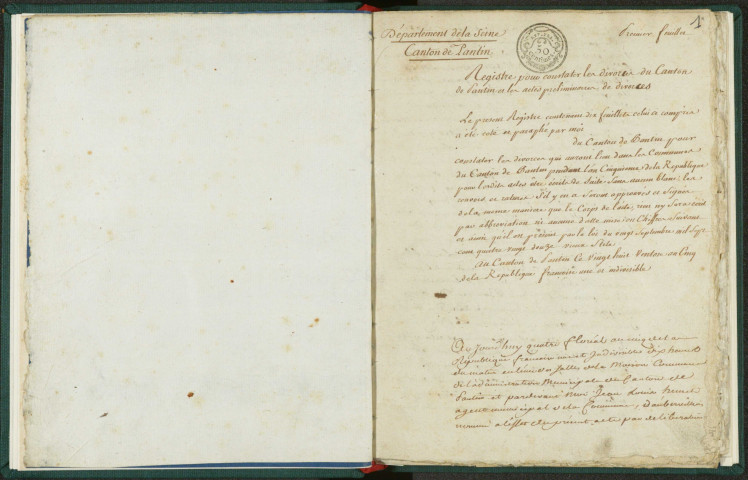 Département de la Seine
Canton de Pantin
Premier feuillet
1
Registre pour constater les divorces du Canton
de Pantin et les actes preliminaires de divorces
Le present Registre contenant feuillets celui cy compris
a été coté et paraphé par moi
du Canton de Pantin pour
constater les divorces qui auront lieu dans les Communes
du Canton de Pantin pendant l'an Cinquieme de la Republique
pour lesdits actes être écrits de Suite Sans aucun blanc les
renvois et ratures S'il y en a Seront approuvés et Signés
de la meme maniere que le Corps de l'acte, rien n'y Sera écrit
par abbreviation ni aucune datte mise en Chiffres Suivant
et ainsi qu'il est prescrit par la loi du vingt Septembre mil Sept
cent quatre vingt douze vieux Stile
au Canton de Pantin Ce vingt huit Ventose an Cinq
de la Republique françoise une et indivisible
Ce jourd'huy quatre floréal an cinq de la
République francoise une et Indivisible dix heures
du matin en l'une des Salles de la Maison Commune
de l'administration Municipale du Canton de
Pantin et pardevant Moi Jean Louis
agent municipal de la Commune d'aubervilliers
nommé à l'effet du present acte par deliberation